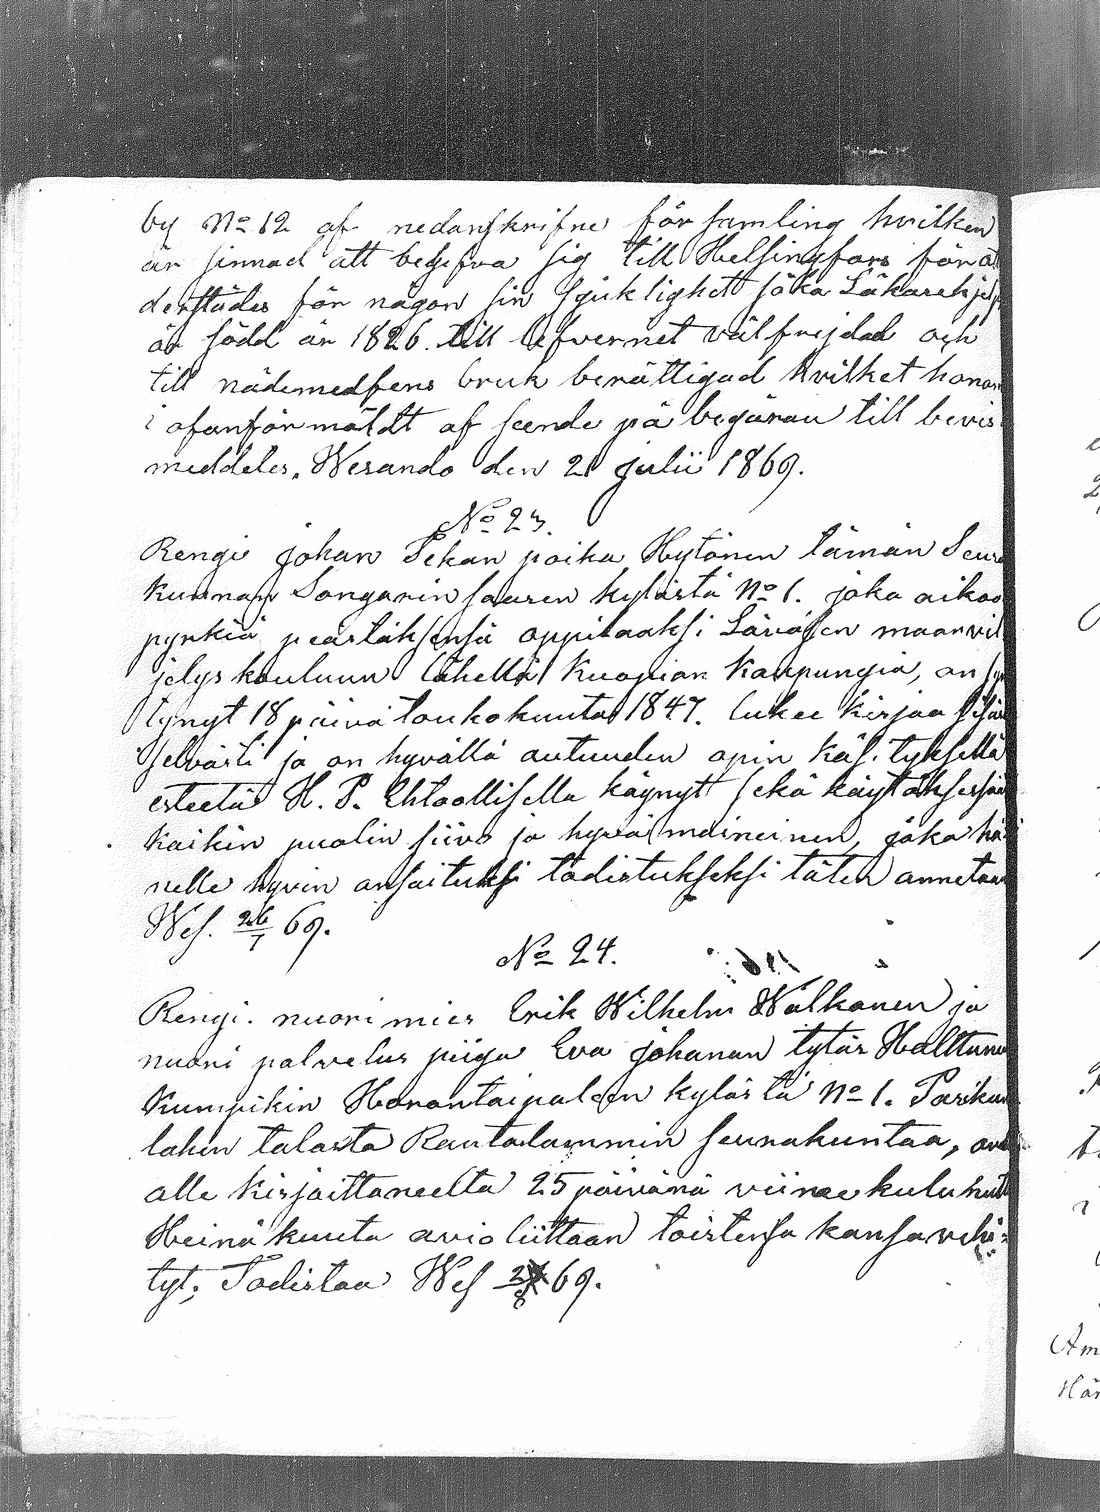 by No 12 af nedanskrifne församling hvilken
är sinnad att begifva sig till Helsingfors för at
derstädes för någon sin sjuklighet söka Läkarehjelp
är född år 1826. till lefvernet välfrejdad och
till nådemedlens bruk berättigad hvilket honom
i ofanförmäldt af seende på begäran till bevis
meddeles. Wesando den 21 julii 1869.
No 23.
Rengi johan Pekan poika Hytönen tämän Seura
kunnan Songarin saaren kylästä No 1. joka aikoo
pyrkiä päästäksensä oppilaaksi Läväsen maanvil
jelys kouluun lähellä Kuopion Kaupungia, on syn
tynyt 18 päivä toukokuuta 1847. lukee kirjaa sisä
selvästi ja on hyvällä autuuden opin käsityksellä
esteetä H. P. Ehtoollisella käynyt sekä käytöksessään
kaikin puolin siivo ja hyvä maineinen, joka hä
nelle hyvin ansaituksi todistukseksi täten annetaan
Wes. 26/7 69.
No 24.
Rengi. nuori mies Erik Wilhelm Walkonen ja
nuori palvelus piiga Eva johanan tytär Halttunen
Kumpikin Horontaipaleen kylästä No 1. Parikan
lahin talosta Rautalammin seurakuntaa, ovat
alle kirjoittaneelta 25 päivänä viime kuluhut
Heinä kuuta avioliittoon toistensa kansa vihi-
tyt; Todistaa Wes 69.